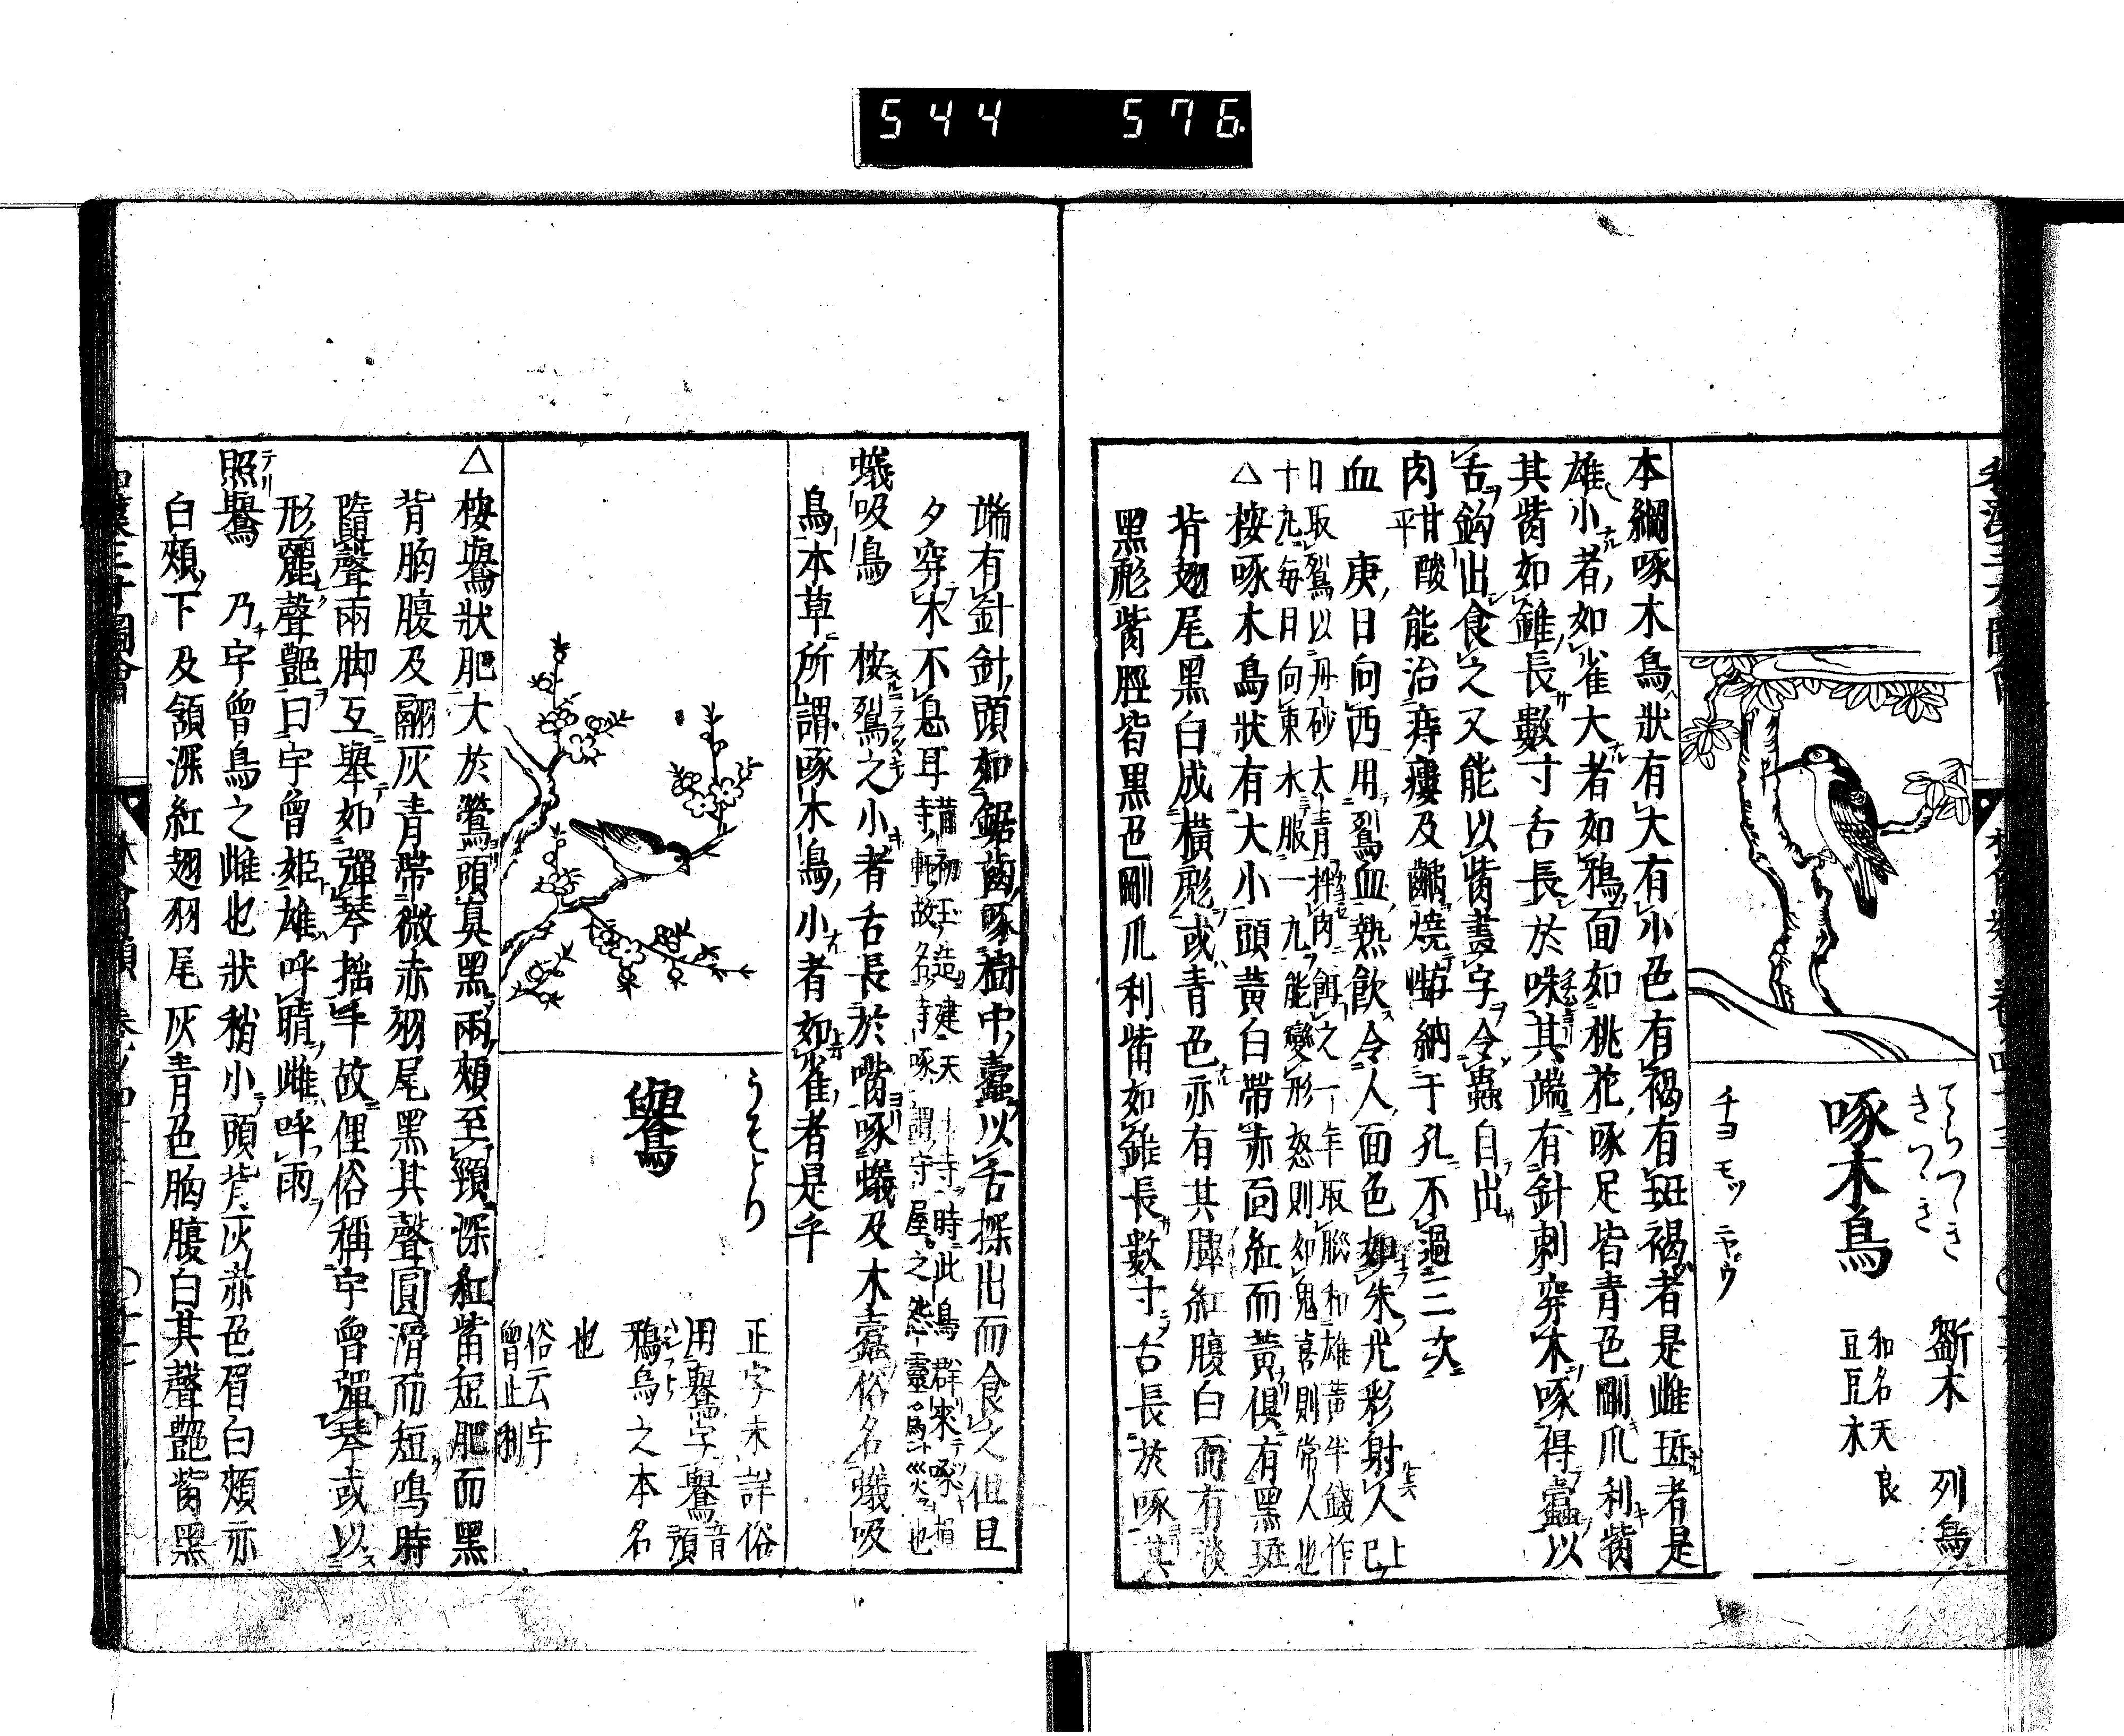 544 576
啄木鳥
てらつゝき
きつゝき
チヨ モツ ニヤウ
斲木 列鳥
和名天良
豆豆木
本綱啄木鳥狀有大有小色有褐有斑褐者是雌斑者是
雄小者如雀大者如鴉面如桃花啄足皆青色剛爪利觜
其觜如錐長數寸舌長於咮其端有針刺穿木啄得蠧以
舌鈎出食之又能以觜畫字令蟲自出
肉甘酸平 能治痔瘻及齲燒 納于孔不過三次
血 庚日向西用鴷血熱飲令人面色如朱光彩射人上巳
日取鴷以丹砂大青拌肉餌之一年取腦和雄黃半錢作
十丸每日向東水服一丸能變形怒則如鬼喜則常人也
△按啄木鳥狀有大小頭黃白帶赤面紅而黃俱有黑斑
背翅尾黑白成橫彪或青色亦有其脾紅腹白而有淡
黑彪觜脛皆黑色剛爪利觜如錐長數寸舌長於啄其
端有針針頭如鋸齒啄樹中蠧以舌探出而食之但且
夕穿木不息耳
蟻吸鳥 按鴷之小者舌長於嘴啄蟻及木蠧俗名蟻吸
鳥本草所謂啄木鳥小者如雀者是乎
鷽
うそとり
正字未詳俗
用鷽字鷽音預
鴉烏之本名
也
俗云宇
曾止利
△按鷽狀肥大於鶯頭真黑兩頰至頸深紅觜短肥而黑
背胸腹及翮灰青帶微赤羽尾黑其聲圓滑而短鳴時
隨聲兩脚互舉如彈琴搖手故俚俗稱宇曾彈琴或以
形麗聲艷曰宇曾姬雄呼晴雌呼雨
照鷽 乃宇曾鳥之雌也狀稍小頭背灰赤色眉白頰亦
白頰下及頷深紅翅羽尾灰青色胸腹白其聲艷觜黑